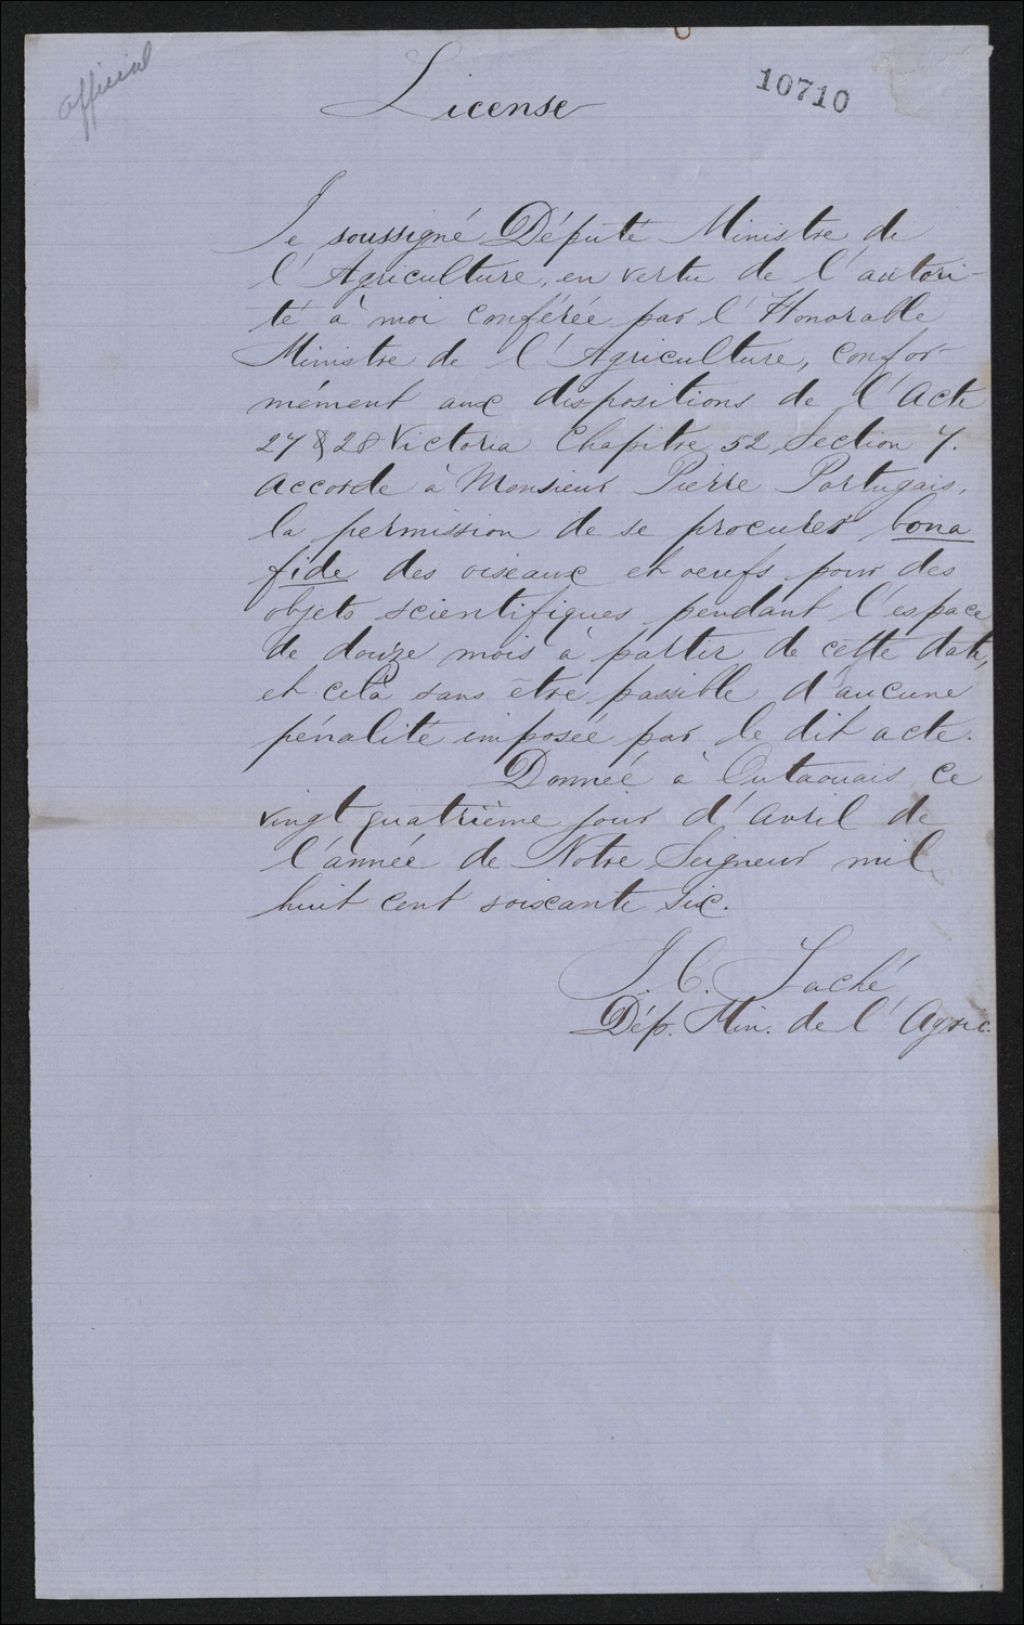 official
License
10710
Je soussigné Député Ministre de
l'Agriculture, en vertu de l'autori-
té à moi conférée par l'Honorable
Ministre de l'Agriculture, confor-
mément aux dispositions de l'Acte
27 & 28 Victoria Chapitre 52 Section 7.
accorde à Monsieur Pierre Portugais,
la permission de se procurer bona
fide des oiseaux et oeufs pour des
objets scientifiques pendant l'espace
de douze mois à partir de cette date,
et cela sans être passible d'aucune
pénalité imposée par le dit acte.
Donnée à Outaouais ce
vingt quatrième jour d'avril de
l'année de Notre Seigneur mil
huit cent soixante six.
J. C. Taché
Dép. Min. de l'Agric.